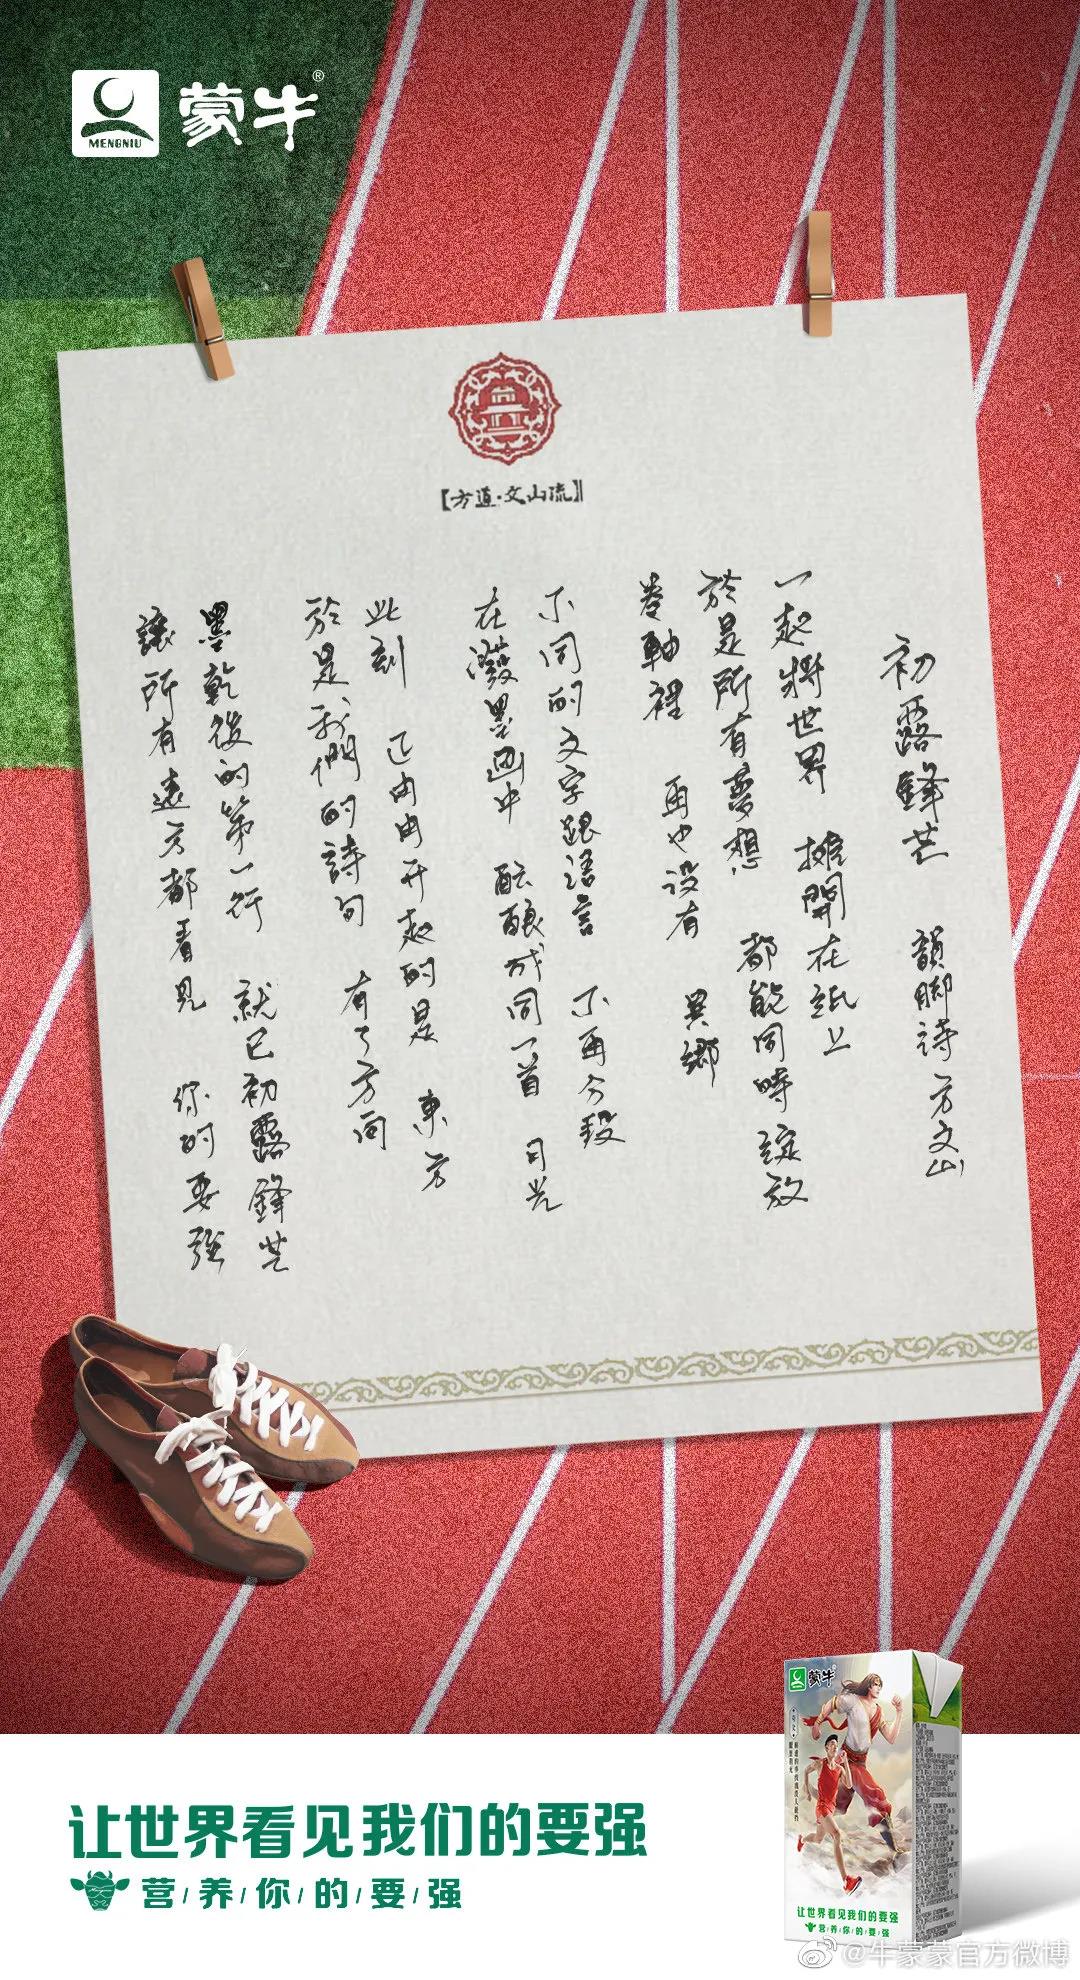 MENGNIU
蒙牛®
【方道·文山流】
初露鋒芒 韻脚詩 方文山
一起將世界 攤開在紙上
於是所有夢想 都能同時綻放
卷軸裡 再也沒有 異鄉
不同的文字跟語言 不再分段
在潑墨画中 醞釀成同一首 月光
此刻 已由由开起的是 東方
於是我們的詩句 有了方向
墨乾後的第一行 就已初露鋒芒
讓所有遠方都看見 你的要強
让世界看见我们的要强
营/养/你/的/要/强
蒙牛
让世界看见我们的要强
营/养/你/的/要/强
@牛蒙蒙官方微博